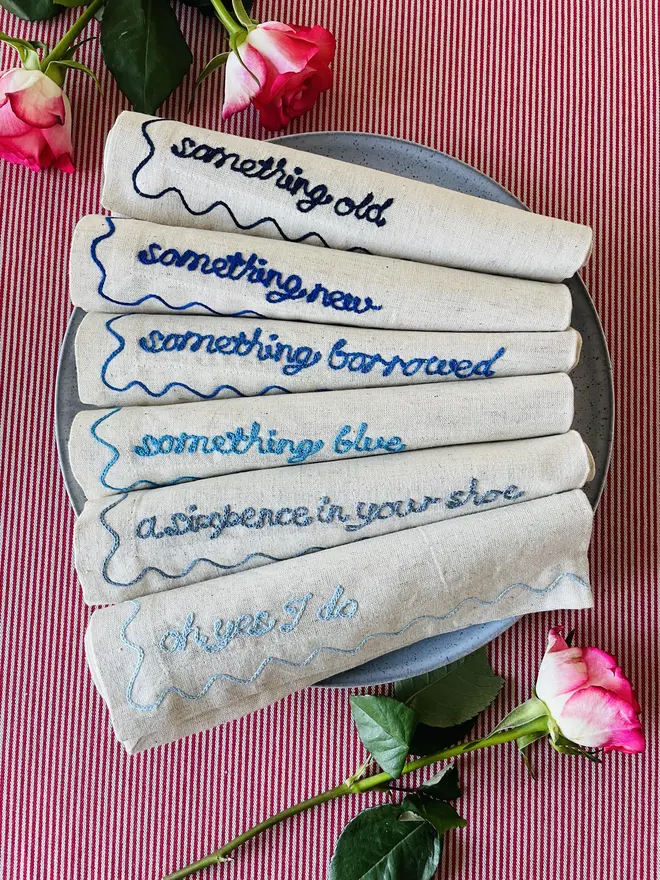 something old
something new
something borrowed
something blue
a sixpence in your shoe
oh yes I do